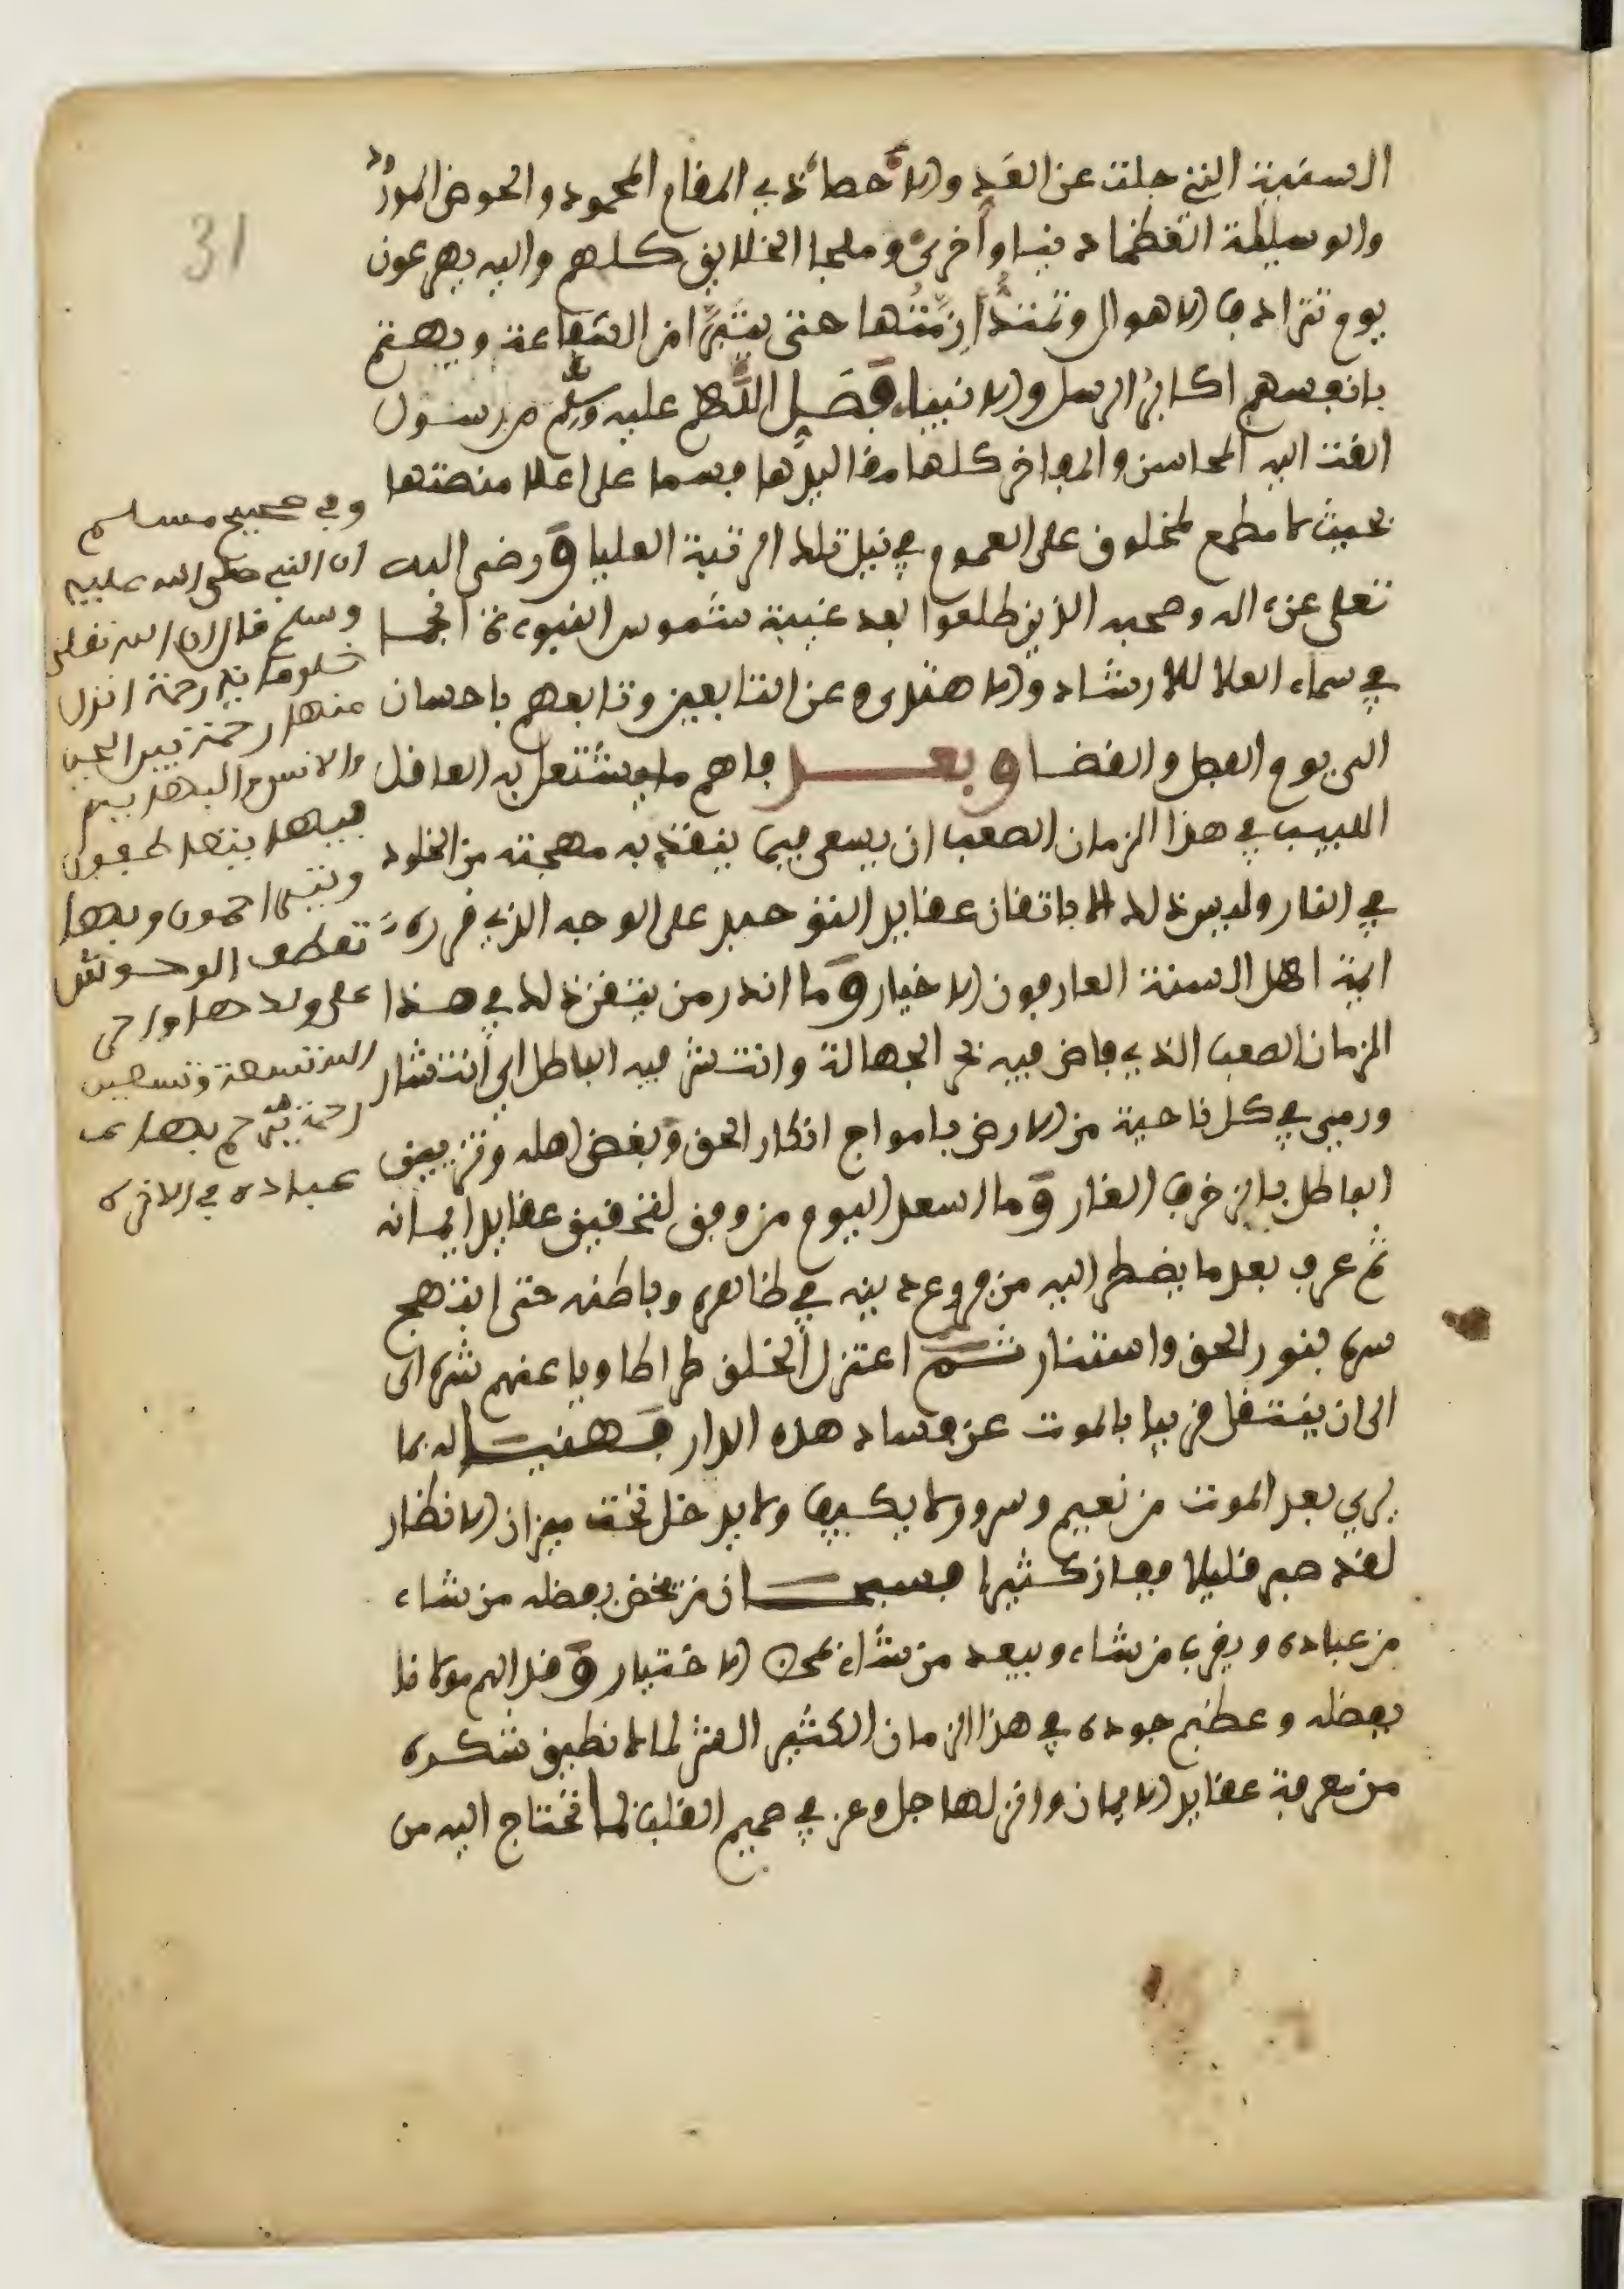 31
السنية التي جلت عن العد والاحصا ذي المقام المحمود والحوض المورود
والوسيلة العظما دنيا وأخرى وملجا الخلايق كلهم واليه يهرعون
يوم تترادف الاهوال وتمتد أزمتها حتى يتبرأ من الشفاعة ويهتم
بانفسهم اكابر الرسل والانبياء فصل اللهم عليه وسلم من رسول
القت اليه المحاسن والمفاخر كلها مقاليدها فسما على اعلا منصتها
بحيث لا مطمع لمخلوق على العموم في نيل تلك المرتبة العليا ورضي الله
تعلى عن ءاله وصحبه الذين طلعوا بعد غيبة شموس النبوءة انجما
في سماء العلا للارشاد والاهتدى وعن التابعين وتابعهم باحسان
الى يوم الفصل والقضا وبعد فاهم ما يشتغل به العاقل
اللبيب في هذا الزمان الصعب ان يسعى فيما ينقذ به مهجته من الخلود
في النار وليس ذلك الا باتقان عقايد التوحيد على الوجه الذي قرره
ايمة اهل السنة العارفون الاخيار وما اندر من يتقن ذلك في هذا
الزمان الصعب الذي فاض فيه بحر الجهالة وانتشر فيه الباطل اي انتشار
ورمى في كل ناحية من الارض بامواج انكار الحق وبغض اهله وتزيين
الباطل بالزخرف الغار وما اسعد اليوم من وفق لتحقيق عقايد ايمانه
ثم عرف بعد ما يضطر اليه من فروع دينه في ظاهره وباطنه حتى ابتهج
سره بنور الحق واستنار ثم اعتزل الخلق طرا طاويا عنهم شره الى
الى ان ينتقل قريبا بالموت عن فساد هذه الدار فهنيئا له بما
يرى بعد الموت من نعيم وسرور لا يكيف ولا يدخل تحت ميزان الانظار
لقد صبر قليلا ففاز كثيرا فسبحان من يخص بفضله من شاء
من عباده ويقرب من شاء ويبعد من شاء بمحض الاختيار وقد الهم مولانا
بفضله وعظيم جوده في هذا الزمان الكثير الشر لما لا نطيق شكره
من معرفة عقايد الايمان وانزلها جل وعز في صميم القلب لما تحتاج اليه من
وفي صحيح مسلم
ان النبي صلى الله عليه
وسلم قال ان الله تعلى
خلق ماية رحمة انزل
منها رحمة بين الجن
والانس والبهايم
فبها يتعاطفون
ويتراحمون وبها
تعطف الوحوش
على ولدها واخر
الله تسعة وتسعين
رحمة يرحم بها
عباده في الاخرة